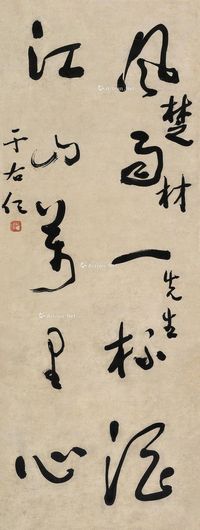 風雨一杯酒
楚材先生
江山萬里心
于右任